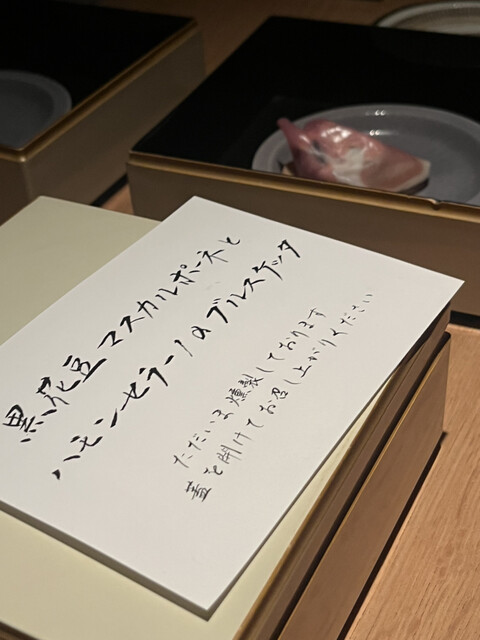 黒花豆 マスカルポーネと
ハモンセラーノのブルスケッタ
ただいま燻製しております
蓋を開けてお召し上がりください